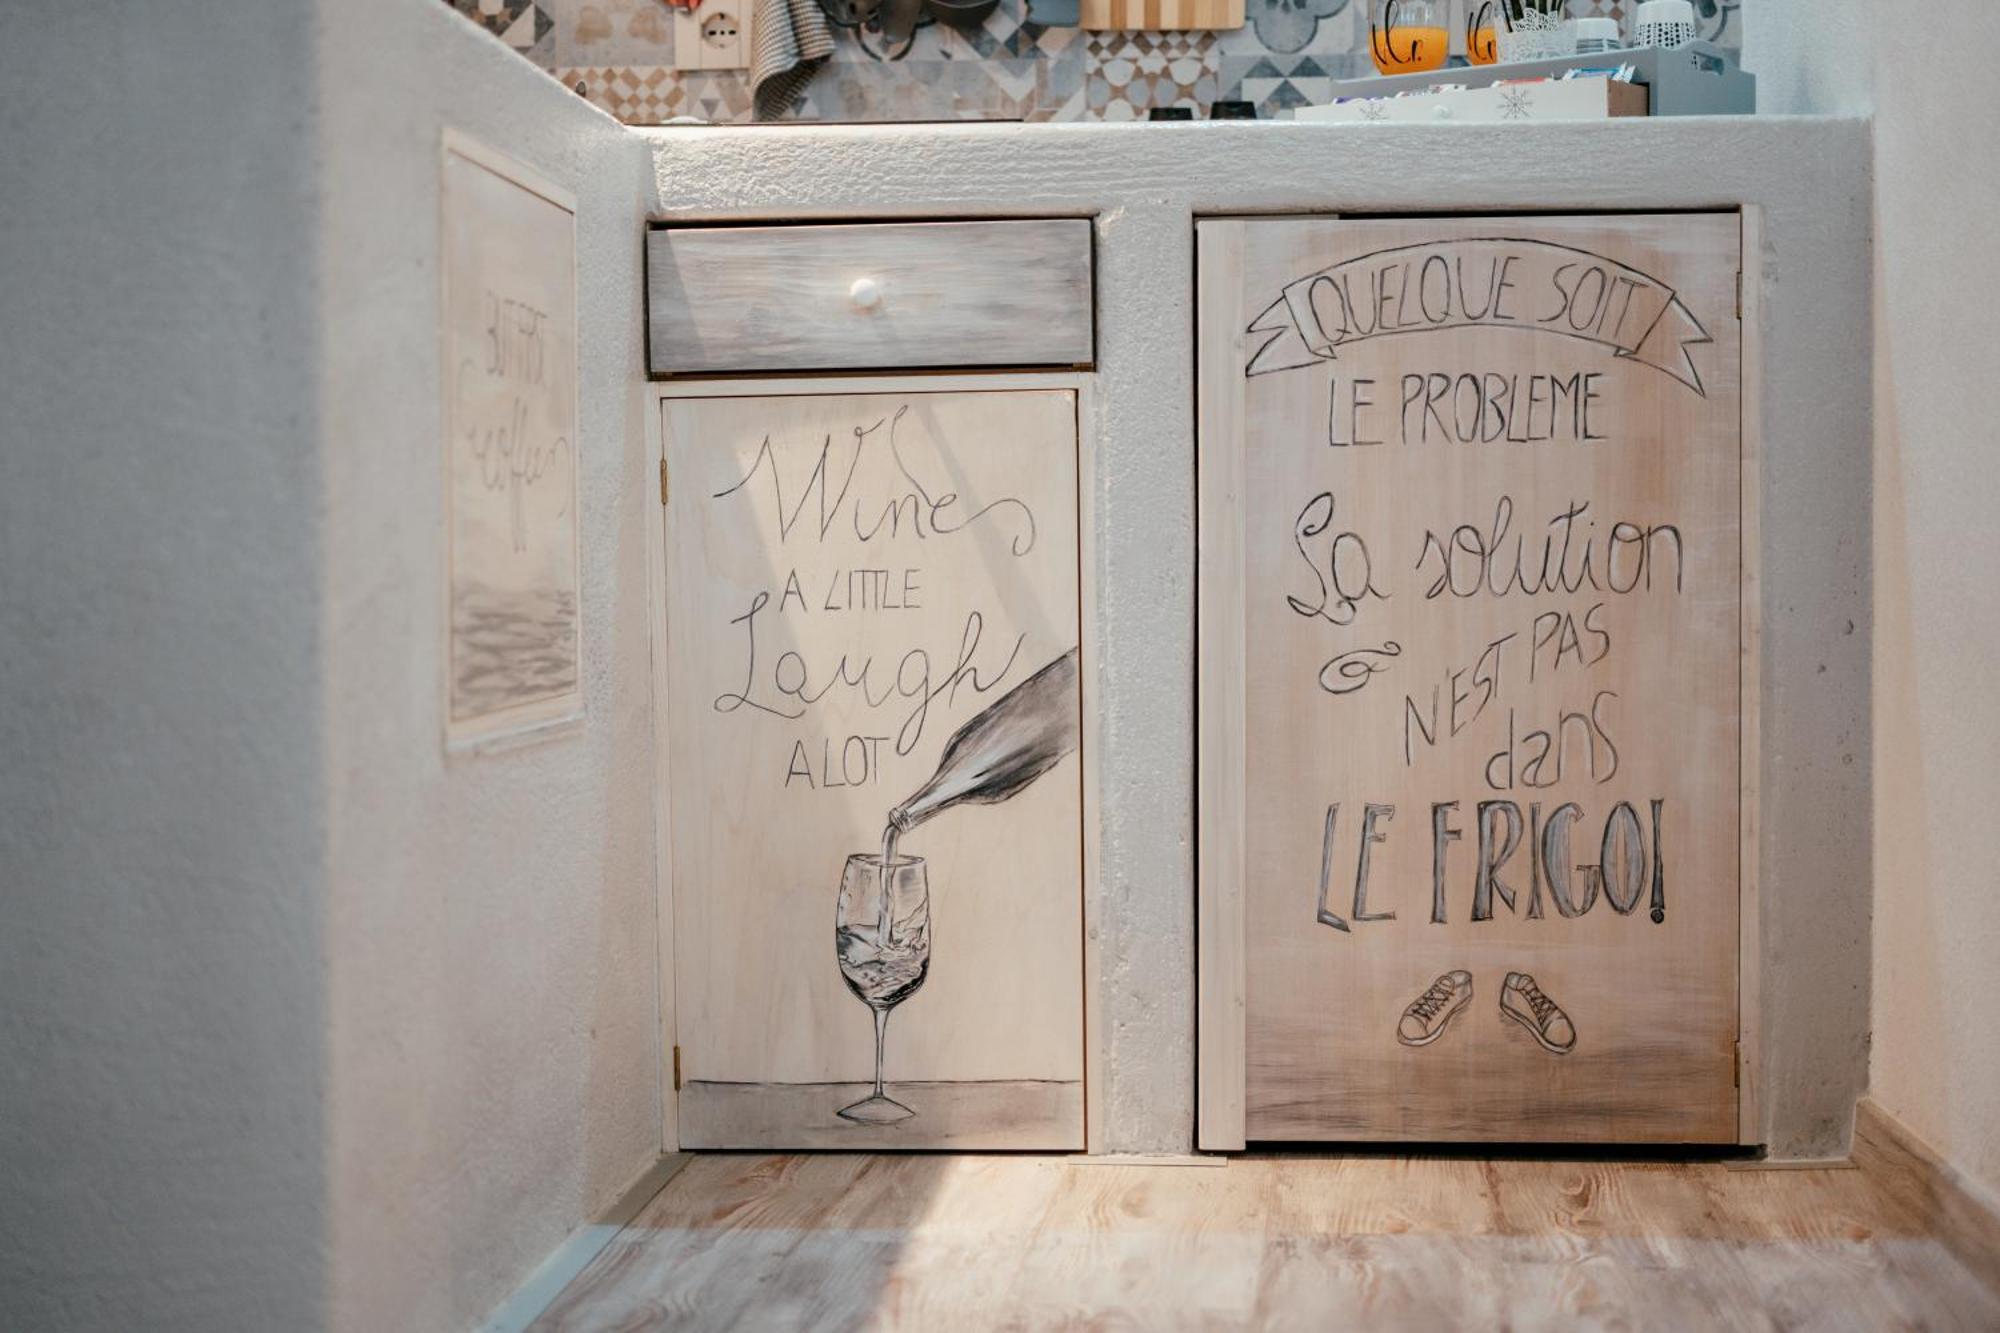 Mr.
BUT FIRST
coffee
Wine
A LITTLE
Laugh
A LOT
QUELQUE SOIT
LE PROBLEME
La solution
N'EST PAS
dans
LE FRIGO!